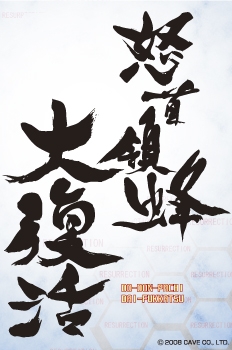 怒首領蜂
大復活
DO-DON-PACHI
DAI-FUKKATSU
RESURRECTION
RESURRECTION
RESURRECTION
RESURRECTION
© 2008 CAVE CO., LTD.